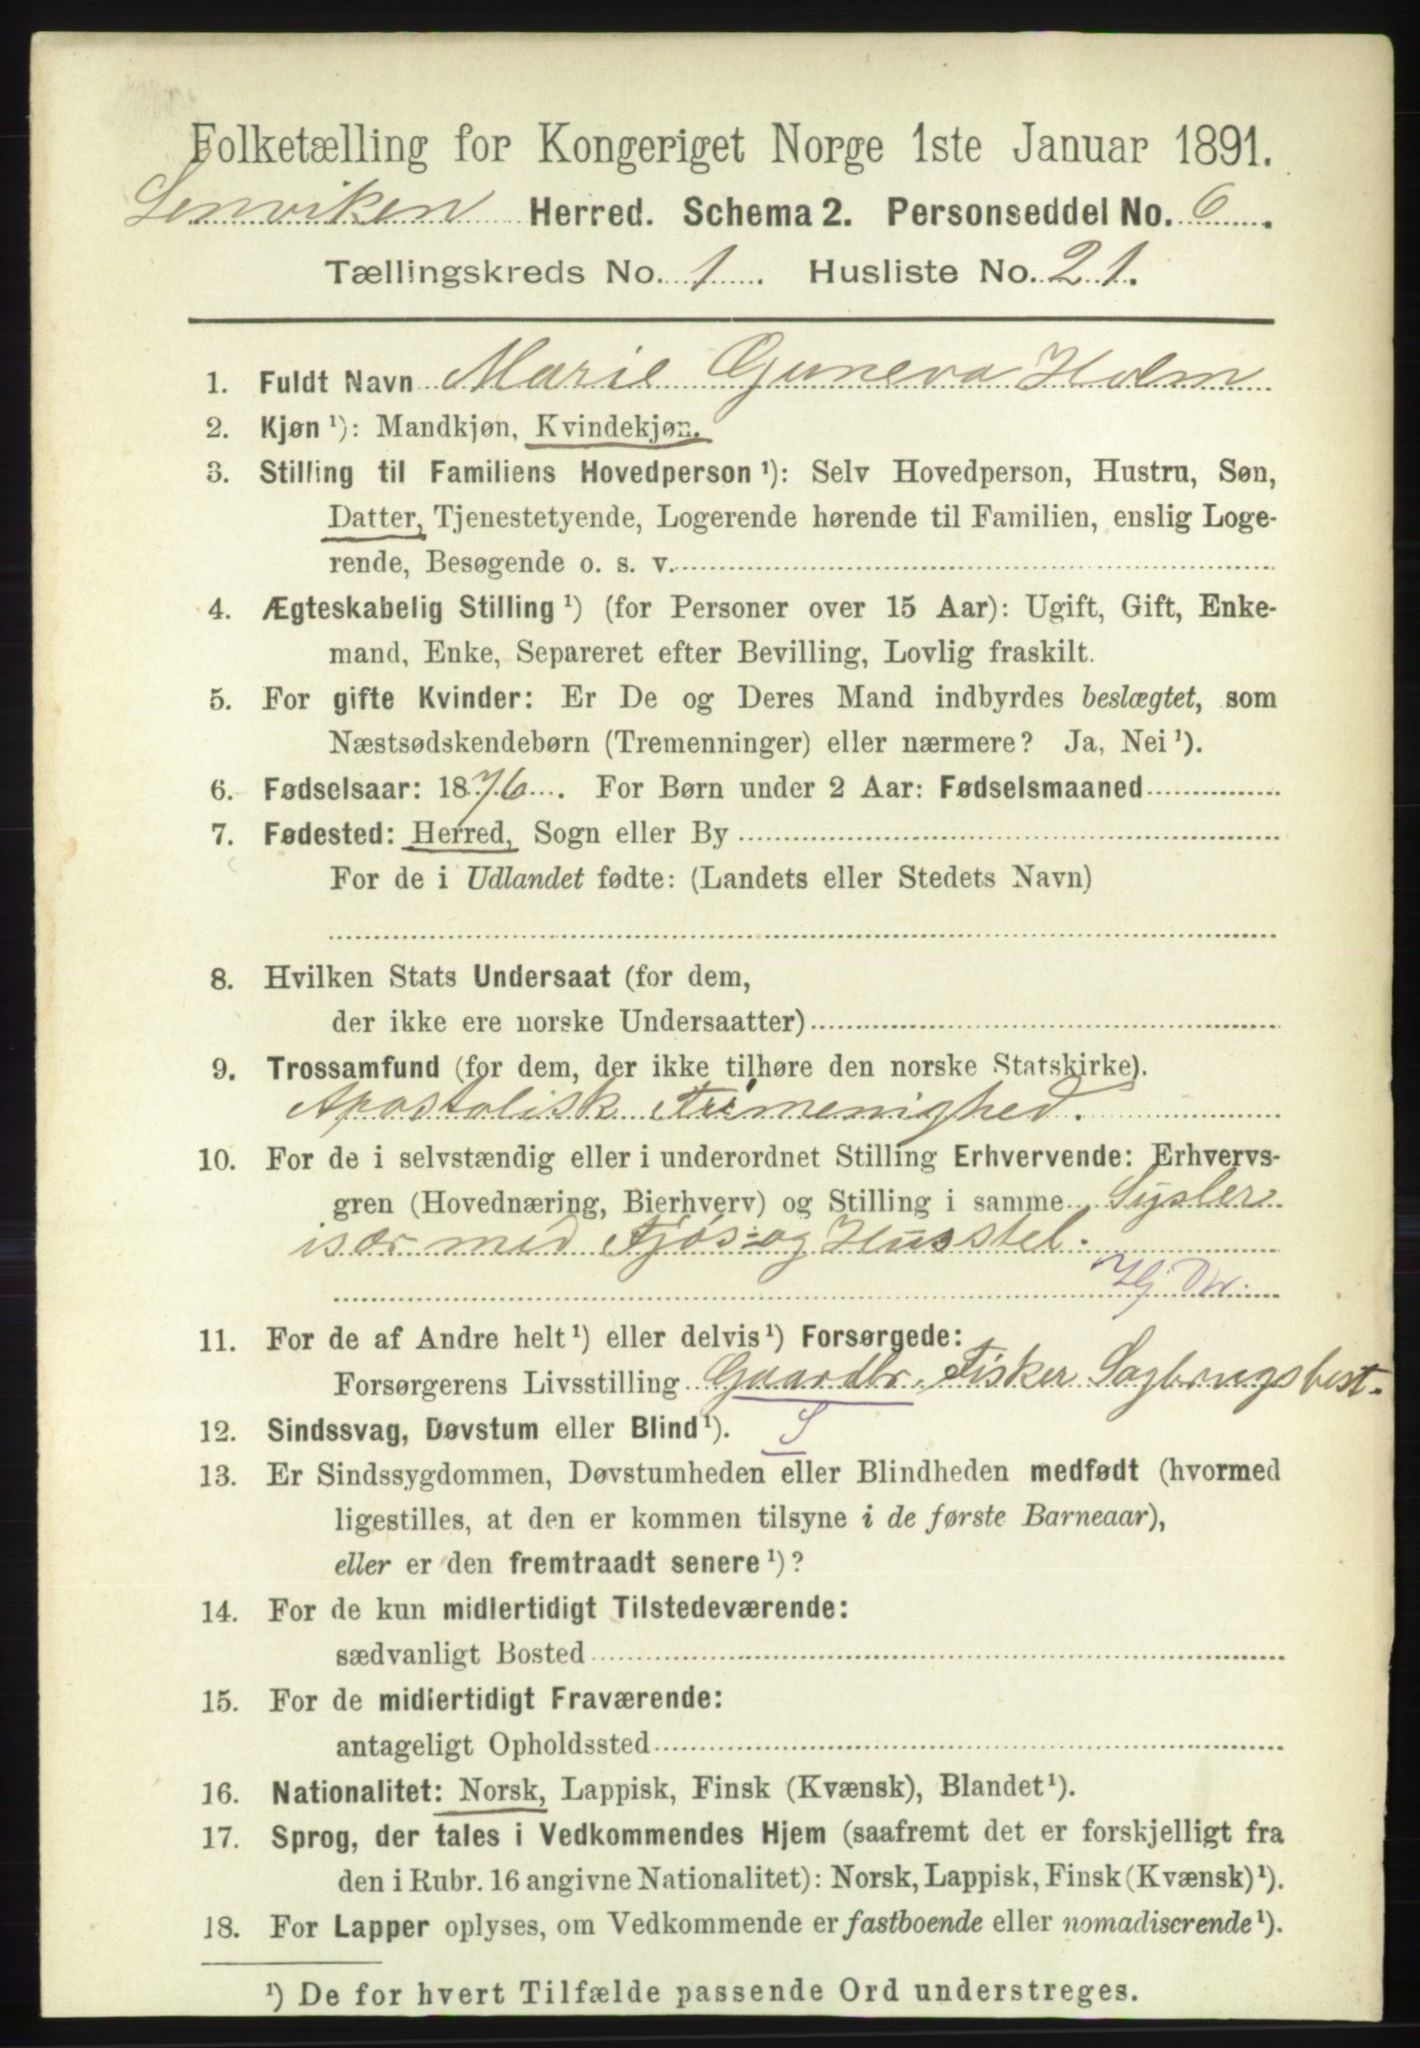 Folketælling for Kongeriget Norge 1ste Januar 1891.
Lenviken Herred. Schema 2. Personseddel No. 6.
Tællingskreds No. 1. Husliste No. 21.
1. Fuldt Navn Marie Guneva Holm
2. Kjøn ¹): Mandkjøn, Kvindekjøn.
3. Stilling til Familiens Hovedperson ¹): Selv Hovedperson, Hustru, Søn,
Datter, Tjenestetyende, Logerende hørende til Familien, enslig Loge-
rende, Besøgende o. s. v.
4. Ægteskabelig Stilling ¹) (for Personer over 15 Aar): Ugift, Gift, Enke-
mand, Enke, Separeret efter Bevilling, Lovlig fraskilt.
5. For gifte Kvinder: Er De og Deres Mand indbyrdes beslægtet, som
Næstsødskendebørn (Tremenninger) eller nærmere? Ja, Nei ¹).
6. Fødselsaar: 1876. For Børn under 2 Aar: Fødselsmaaned
7. Fødested: Herred, Sogn eller By
For de i Udlandet fødte: (Landets eller Stedets Navn)
8. Hvilken Stats Undersaat (for dem,
der ikke ere norske Undersaatter)
9. Trossamfund (for dem, der ikke tilhøre den norske Statskirke).
Apostolisk Frimenighed.
10. For de i selvstændig eller i underordnet Stilling Erhvervende: Erhvervs-
gren (Hovednæring, Bierhverv) og Stilling i samme Sysler
især med Fjøs- og Husstel.
Hg Dr.
11. For de af Andre helt ¹) eller delvis ¹) Forsørgede:
Forsørgerens Livsstilling Gaardbr. Fisker Sagbrugsbest.
12. Sindssvag, Døvstum eller Blind ¹). S
13. Er Sindssygdommen, Døvstumheden eller Blindheden medfødt (hvormed
ligestilles, at den er kommen tilsyne i de første Barneaar),
eller er den fremtraadt senere ¹)?
14. For de kun midlertidigt Tilstedeværende:
sædvanligt Bosted
15. For de midlertidigt Fraværende:
antageligt Opholdssted
16. Nationalitet: Norsk, Lappisk, Finsk (Kvænsk), Blandet ¹).
17. Sprog, der tales i Vedkommendes Hjem (saafremt det er forskjelligt fra
den i Rubr. 16 angivne Nationalitet): Norsk, Lappisk, Finsk (Kvænsk) ¹).
18. For Lapper oplyses, om Vedkommende er fastboende eller nomadiserende ¹).
¹) De for hvert Tilfælde passende Ord understreges.